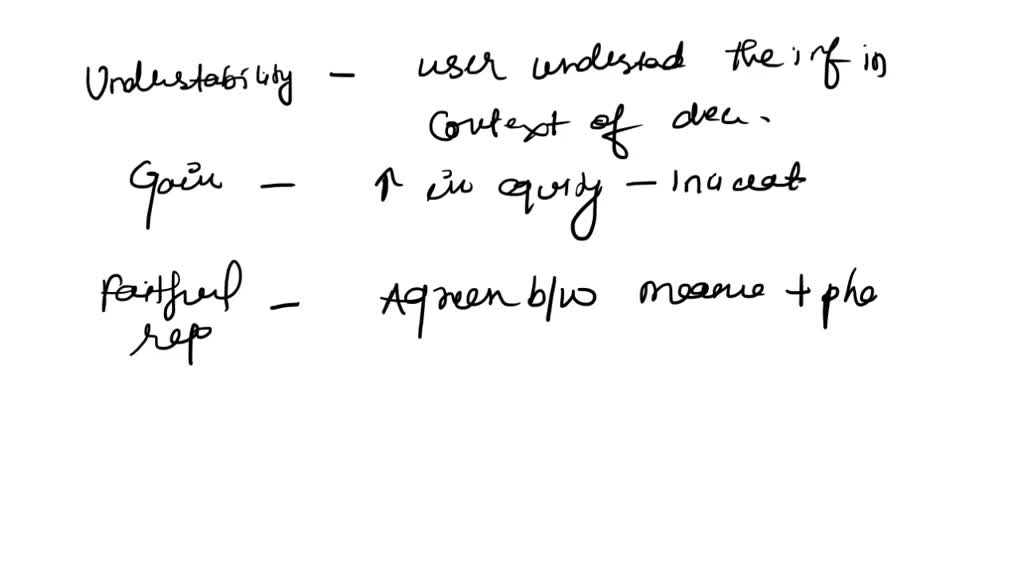 Understability – user undestad the inf in
context of dec.
Gain – ↑ in equity –
Faithful – Agreen b/w measure + phe
rep